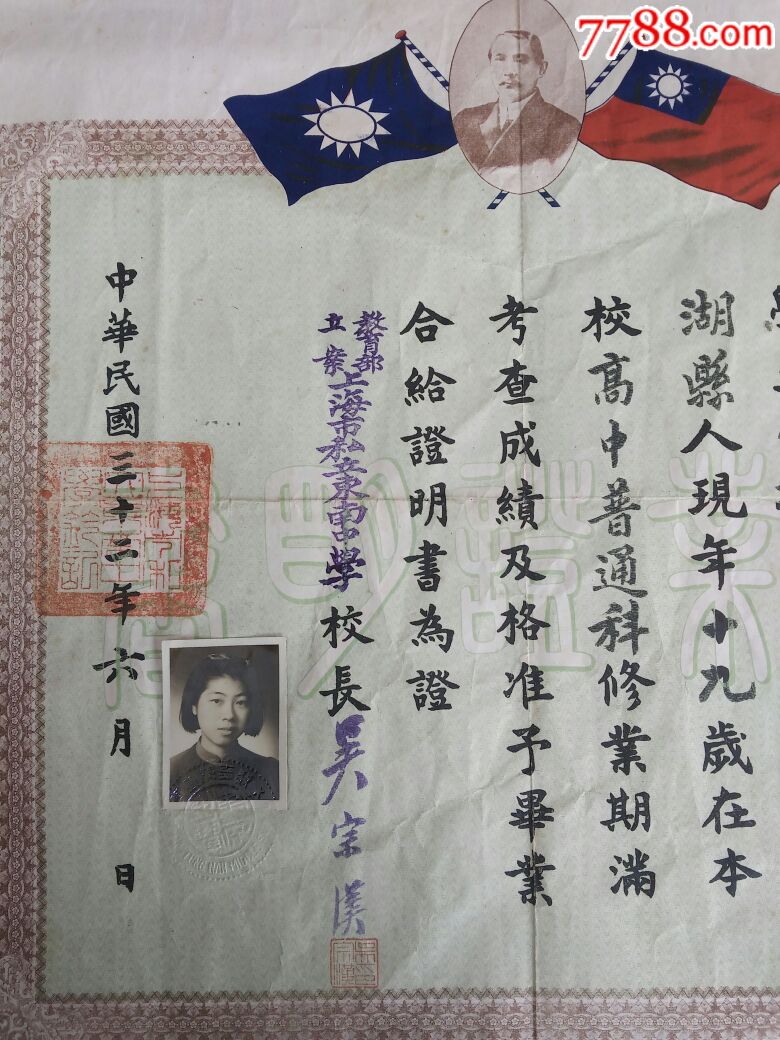 7788.com
湖縣人現年十九歲在本
校高中普通科修業期滿
考查成績及格准予畢業
合給證明書為證
教育部
立案
上海市私立東南中學校長吳宗漢
中華民國三十三年六月 日